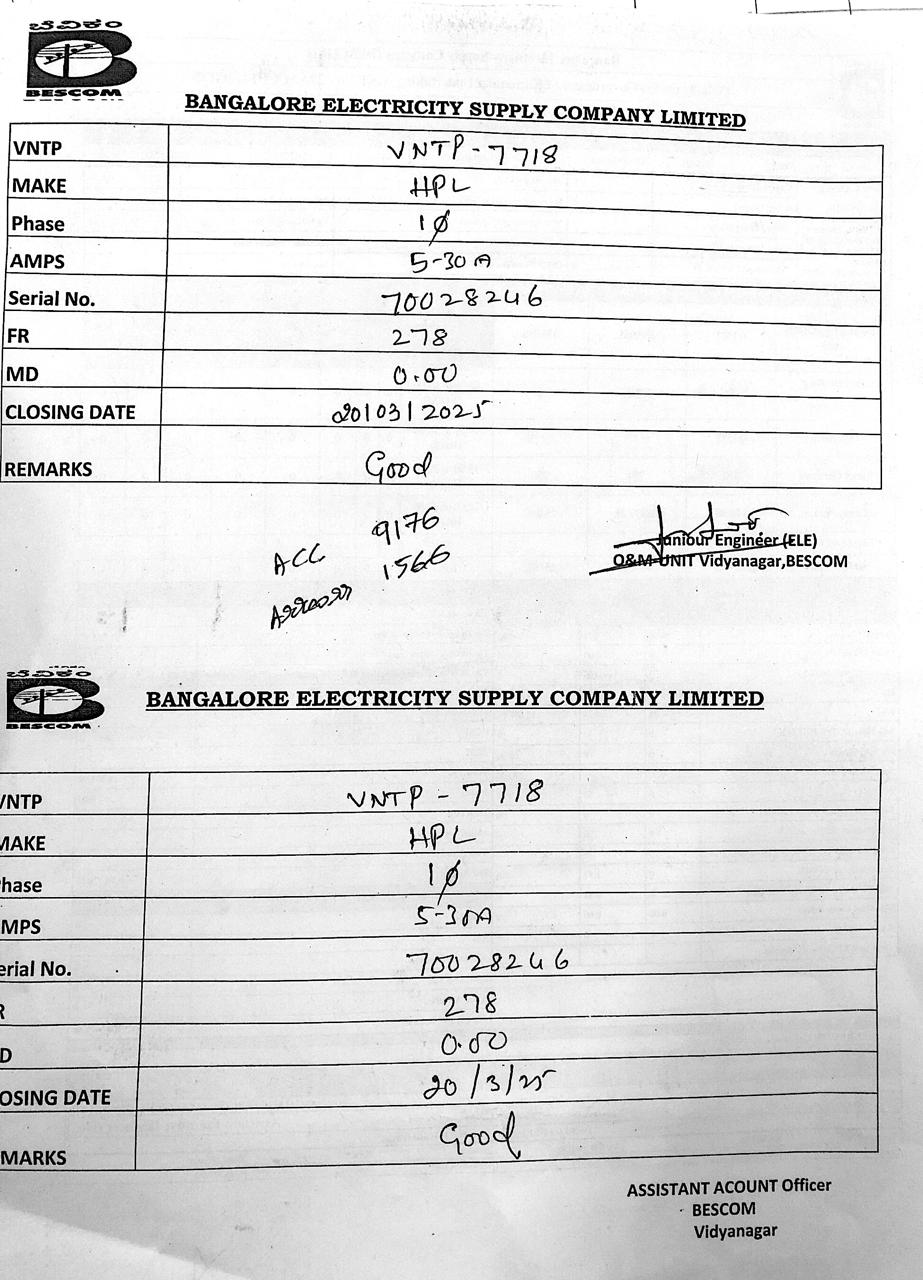 ಬೆವಿಕಂ
BESCOM
BANGALORE ELECTRICITY SUPPLY COMPANY LIMITED
VNTP VNTP-7718
MAKE HPL
Phase 1Ø
AMPS 5-30A
Serial No. 70028246
FR 278
MD 0.00
CLOSING DATE 20/03/2025
REMARKS Good
ACC 9176
1566
Juniour Engineer (ELE)
O&M-UNIT Vidyanagar,BESCOM
ಬೆವಿಕಂ
BESCOM
BANGALORE ELECTRICITY SUPPLY COMPANY LIMITED
VNTP VNTP-7718
MAKE HPL
hase 1Ø
MPS 5-30A
erial No. 70028246
R 278
D 0.00
OSING DATE 20/3/25
MARKS Good
ASSISTANT ACOUNT Officer
BESCOM
Vidyanagar